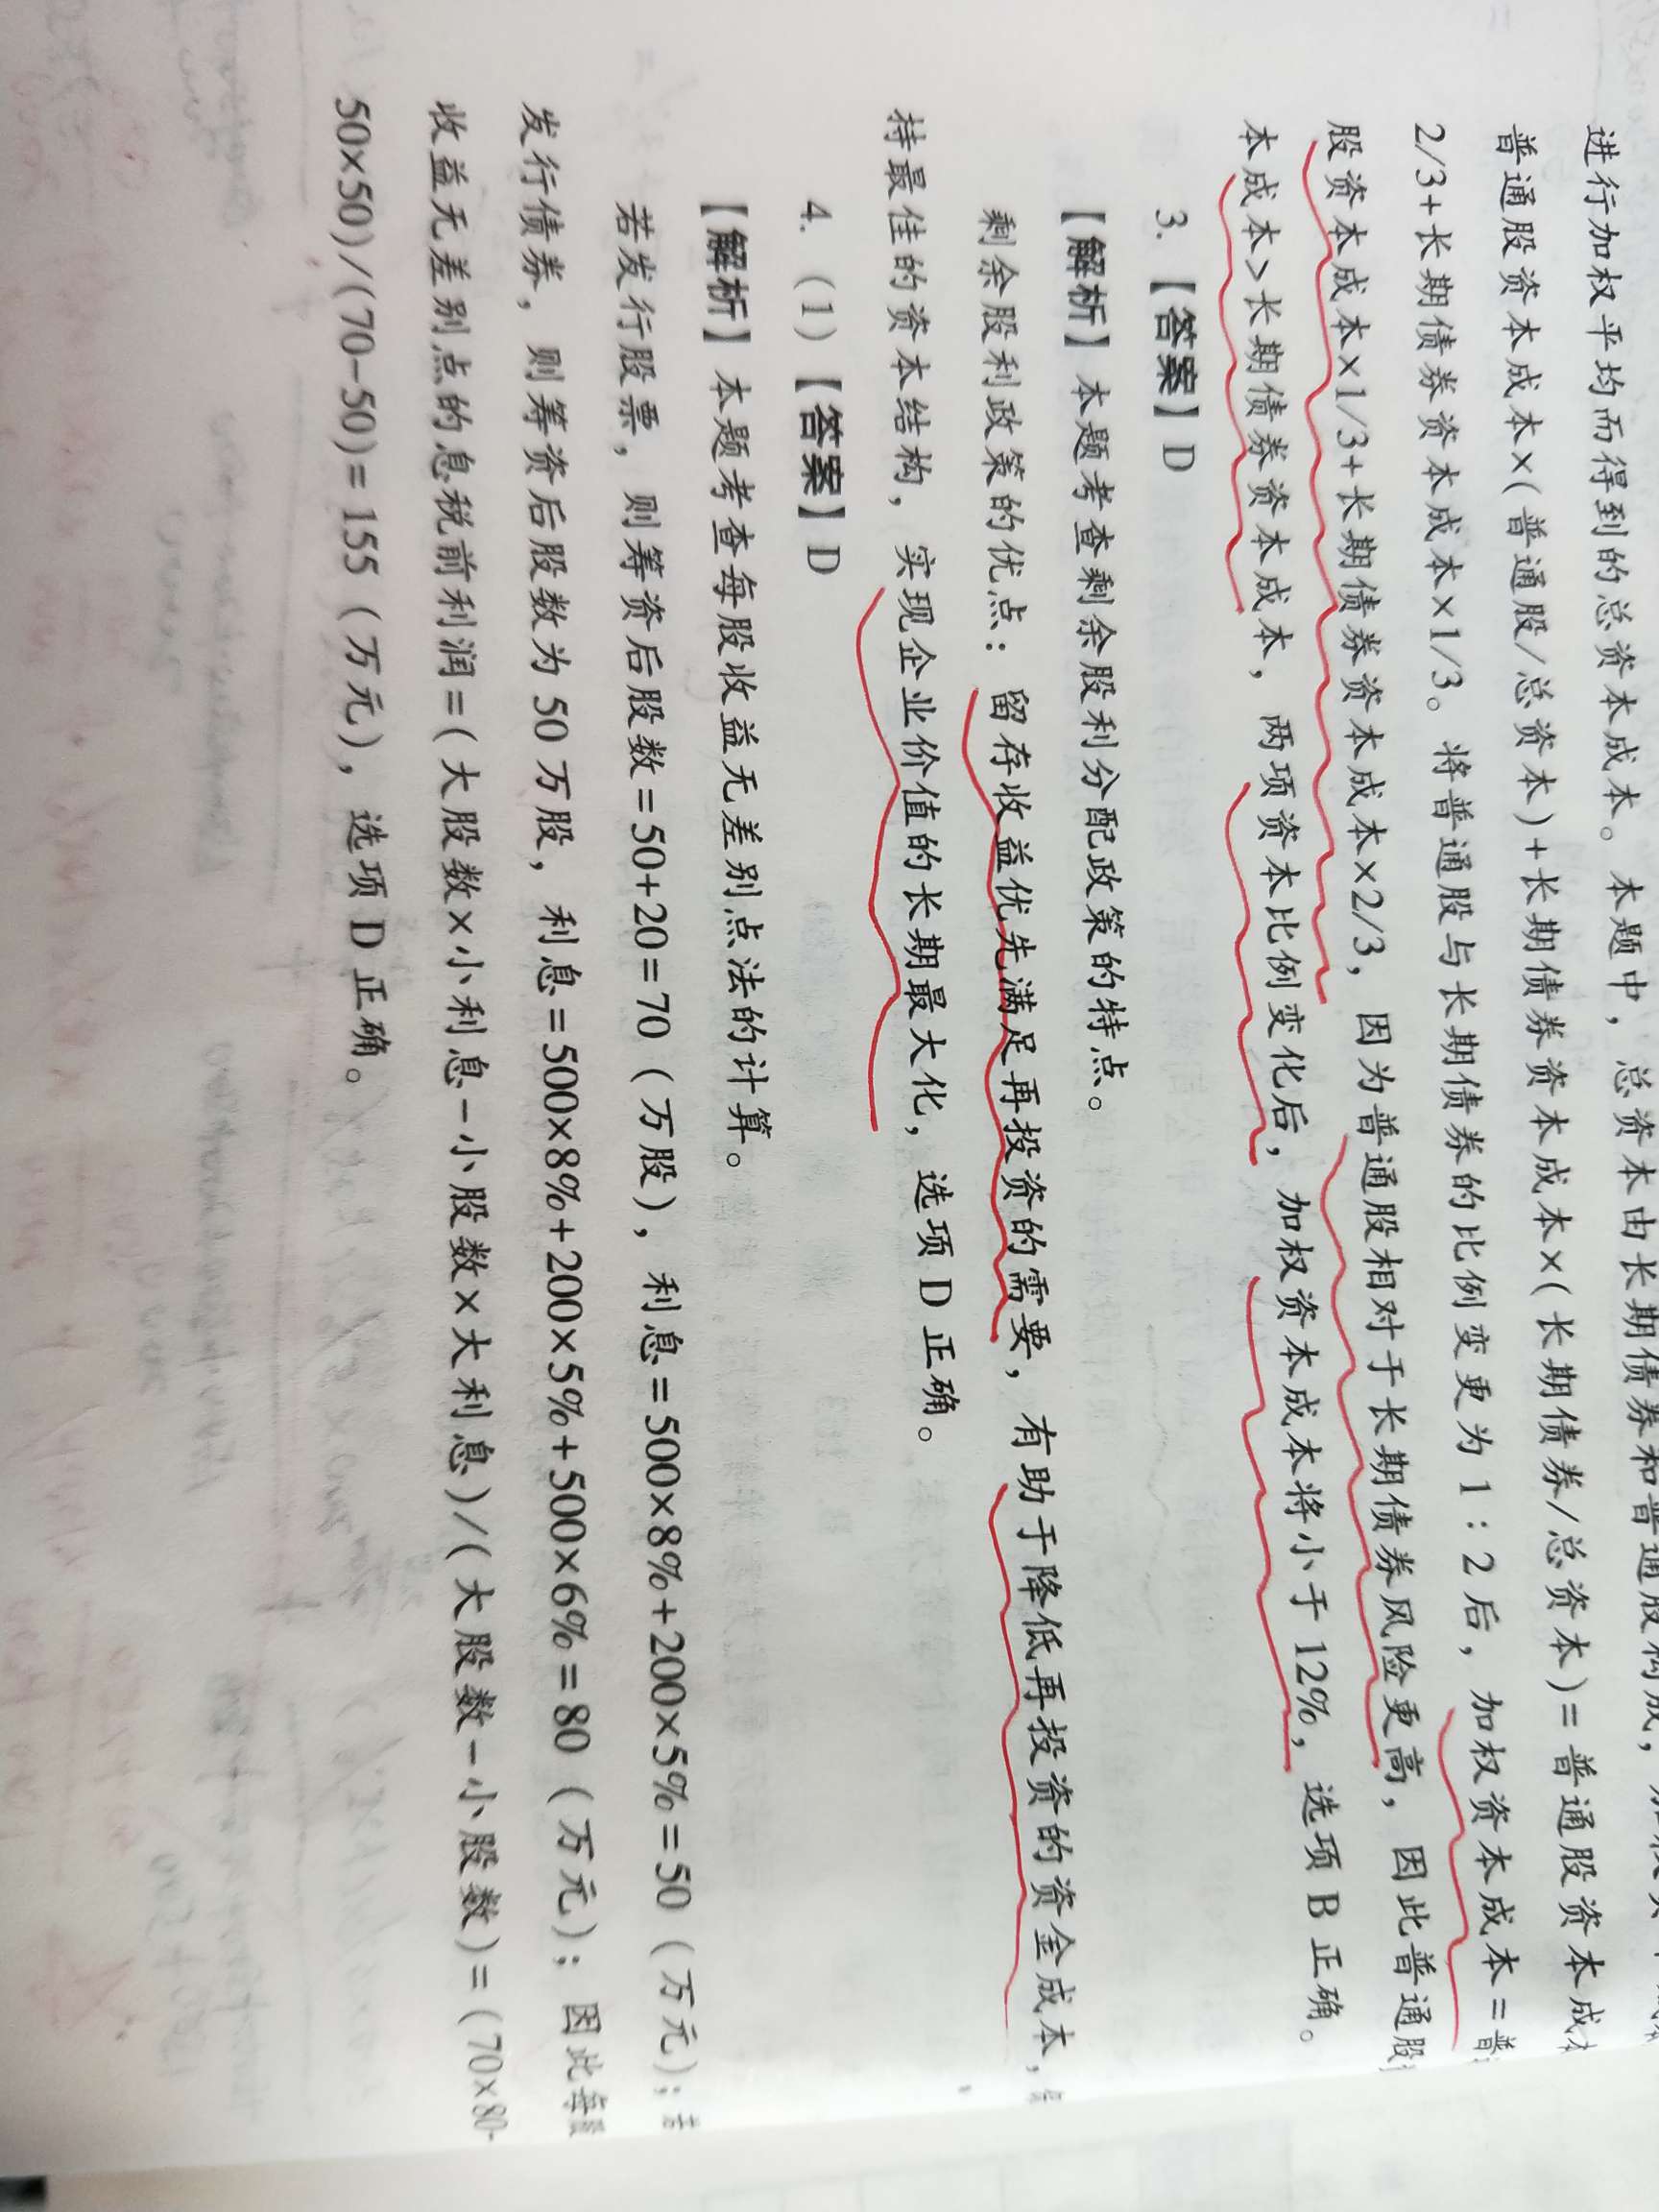 进行加权平均而得到的总资本成本。本题中，总资本由长期债券和普通股构成，加权
普通股资本成本×(普通股/总资本)+长期债券资本成本×(长期债券/总资本)=普通股资本成本
2/3+长期债券资本成本×1/3。将普通股与长期债券的比例变更为1：2后，加权资本成本=普
股资本成本×1/3+长期债券资本成本×2/3，因为普通股相对于长期债券风险更高，因此普通股
本成本>长期债券资本成本，两项资本比例变化后，加权资本成本将小于12%，选项B正确。
3.【答案】D
【解析】本题考查剩余股利分配政策的特点。
剩余股利政策的优点：留存收益优先满足再投资的需要，有助于降低再投资的资金成本，
持最佳的资本结构，实现企业价值的长期最大化，选项D正确。
4.（1）【答案】D
【解析】本题考查每股收益无差别点法的计算。
若发行股票，则筹资后股数=50+20=70（万股），利息=500×8%+200×5%=50（万元）；若
发行债券，则筹资后股数为50万股，利息=500×8%+200×5%+500×6%=80（万元）；因此每股
收益无差别点的息税前利润=(大股数×小利息-小股数×大利息)/(大股数-小股数)=(70×80-
50×50)/(70-50)=155（万元），选项D正确。